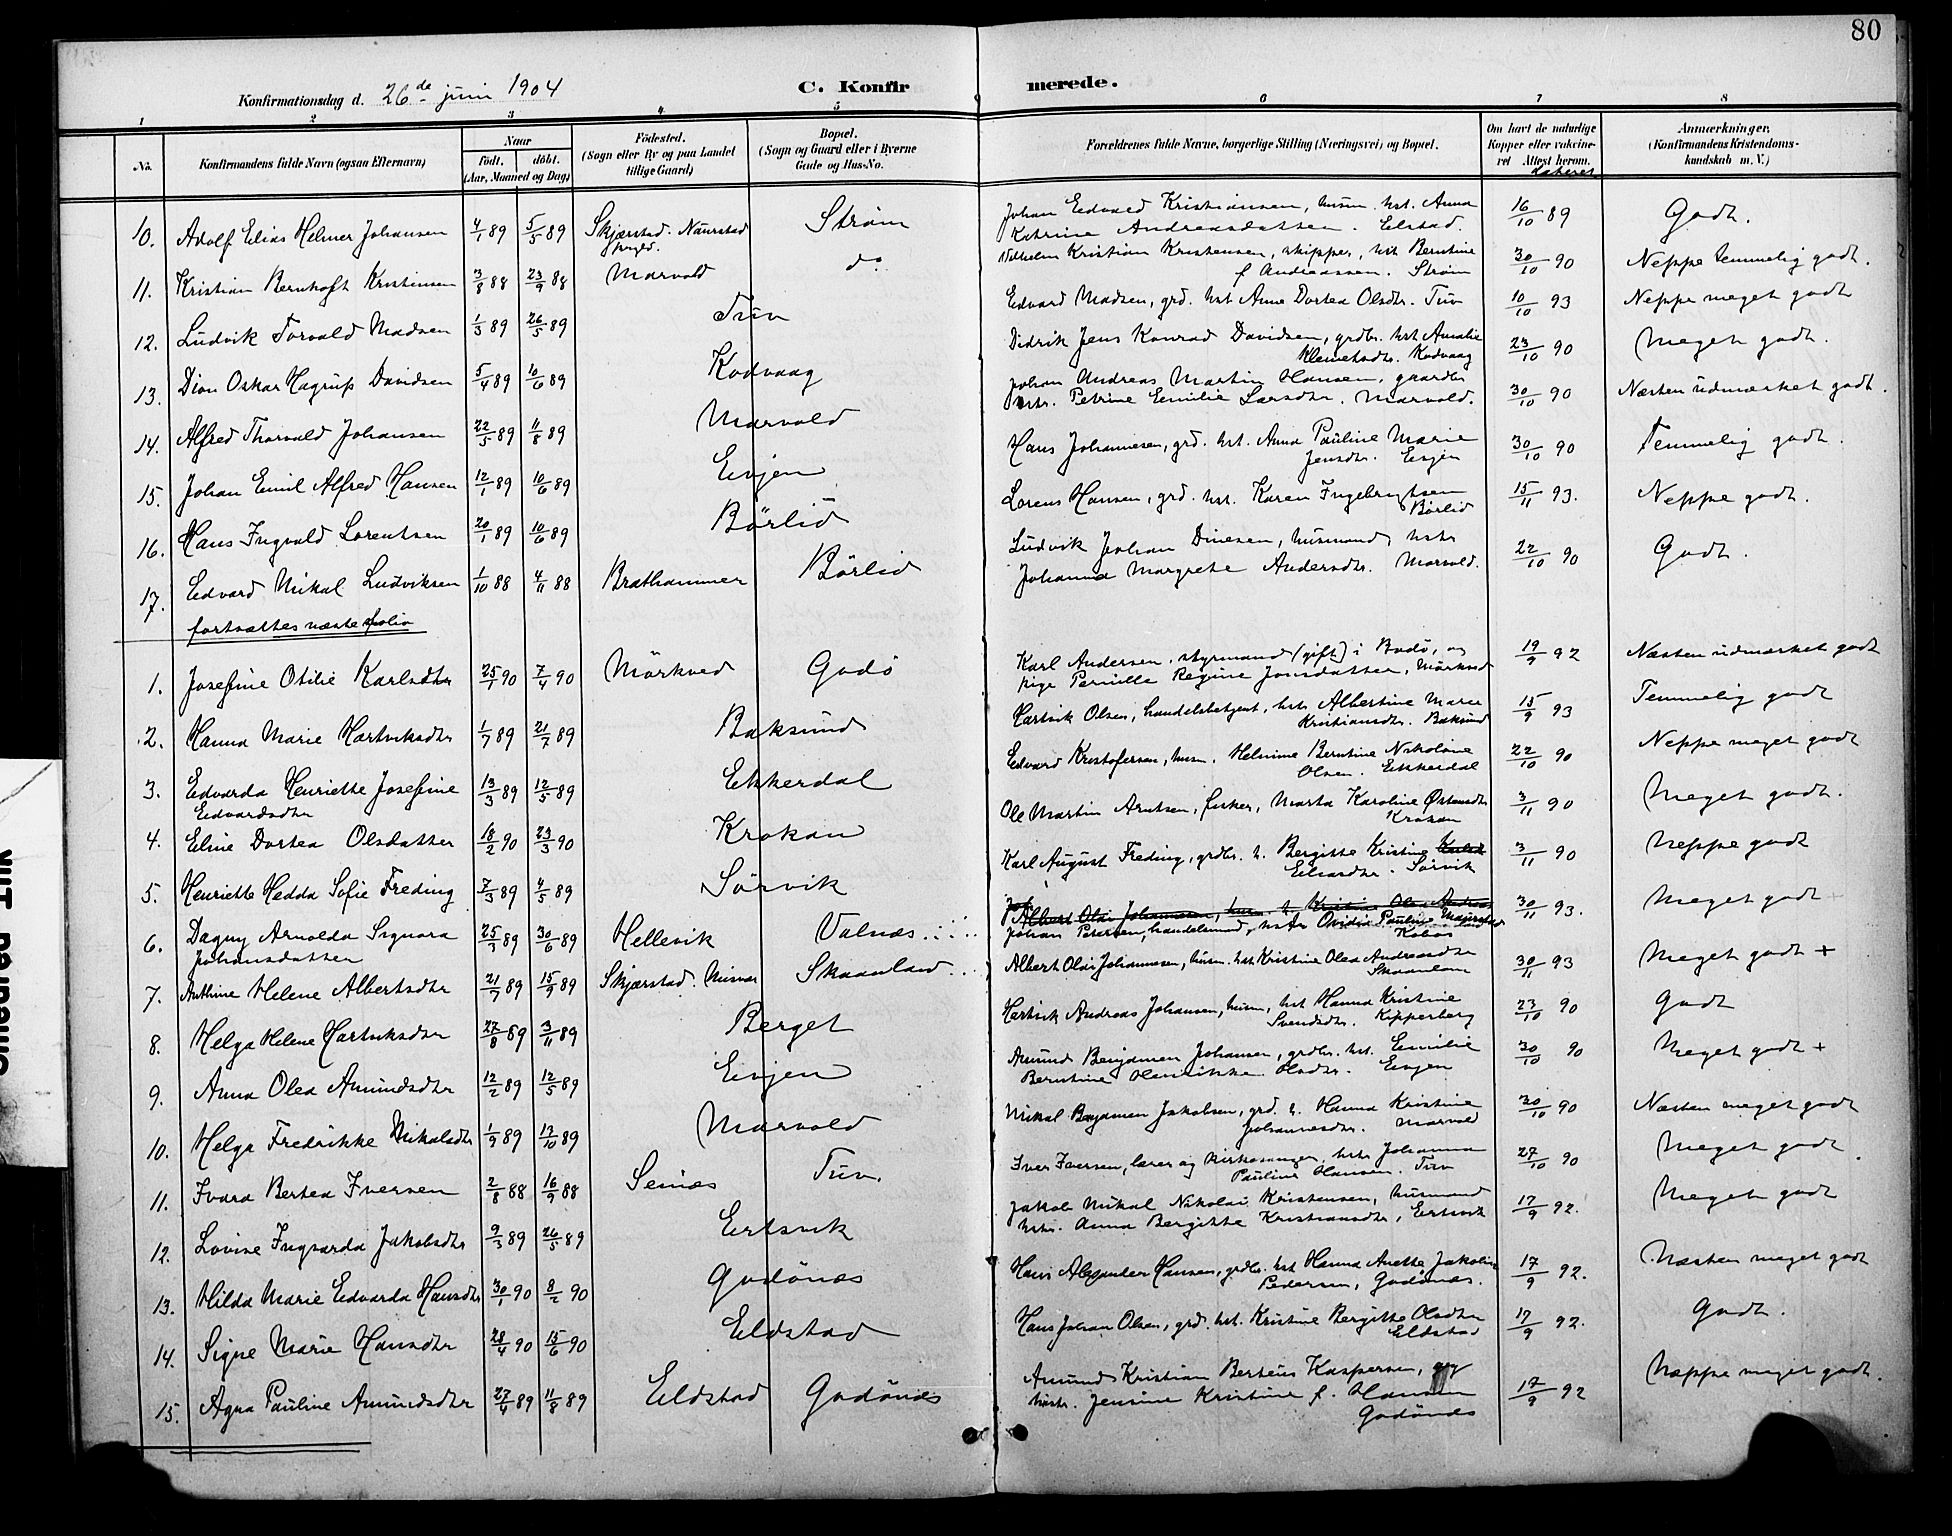 80
Konfirmationsdag d. 26de juni 1904
C. Konfirmerede.
1 2 3 4 5 6 7 8
No.
Konfirmandens fulde Navn (ogsaa Efternavn)
Naar
født. døbt.
(Aar, Maaned og Dag)
Födested.
(Sogn eller By og paa Landet
tillige Gaard)
Bopæl.
(Sogn og Gaard eller i Byerne
Gade og Hus-No.
Forældrenes fulde Navne, borgerlige Stilling (Næringsvei) og Bopæl.
Om havt de naturlige
Kopper eller vaccine-
ret Attest herom.
dateret
Anmærkninger.
(Konfirmandens Kristendoms-
kundskab m. V.)
10. Adolf Elias Helmer Johansen 4/1 89 5/5 89 Skjærstad. Naurstad Strøm Johan Edvard Kristiansen, husm. hst. Anna 16/10 89 Godt.
Katrine Andreasdatter. Elstad.
11. Kristian Bernhoft Kristensen 3/8 88 23/9 88 Marvold do Vilhelm Kristian Kristensen, skipper, hst Berntine 30/10 90 Neppe temmelig godt.
f Andreassen. Strøm
12. Ludvik Torvald Madsen 1/3 89 26/5 89 Tuv Edvard Madsen, grd. hst Anne Dortea Olsdtr. Tuv 10/10 93 Neppe meget godt
13. Dion Oskar Hagrup Davidsen 5/4 89 10/6 89 Kodvaag Didrik Jens Konrad Davidsen, grdbr. hst Amalie 23/10 90 Meget godt.
Klemetsdtr. Kodvaag
14. Alfred Thorvald Johansen 22/5 89 11/8 89 Marvold Johan Andreas Martin Hansen, gaardbr 30/10 90 Næsten udmærket godt.
hstr. Petrine Emilie Larsdtr. Marvold.
15. Johan Emil Alfred Hansen 12/1 89 10/6 89 Evjen Hans Johannesen, grd. hst. Anna Pauline Marie 30/10 90 Temmelig godt.
Jensdtr. Evjen
16. Hans Ingvald Lorentsen 20/1 89 10/6 89 Börlid Lorens Hansen, grd. hst. Karen Ingebrigtsen 15/11 93. Neppe godt.
Börlid
17. Edvard Mikal Ludviksen 1/10 88 4/11 88 Brathammer Börlid Ludvik Johan Dinesen, husmand, hstr 22/10 90 Godt.
Johanna Margrete Andersdtr. Marvold.
fortsættes næste folio
1. Josefine Otilie Karlsdtr 25/1 90 7/4 90 Mörkved Godö Karl Andersen, styrmand (gift) i Bodö, og 19/9 92 Næsten udmærket godt
pige Pernille Regine Jonsdatter, Mörkved
2. Hanna Marie Hartviksdtr 1/7 89 21/7 89 Baksund Hartvik Olsen, handelsbetjent, hstr Albertine Marie 15/9 93 Temmelig godt
Kristiansdtr. Baksund
3. Edvarda Henriette Josefine 13/3 89 12/5 89 Ekkerdal Edvard Kristofersen, husm. Helmine Berntine Nikoline 22/10 90 Neppe meget godt
Edvardsdtr Olsen. Ekkerdal
4. Eline Dortea Olsdatter 18/2 90 23/3 90 Krokan Ole Martin Arntsen, fisker, Marta Karoline Östensdtr 3/11 90 Meget godt.
Krokan
5. Henriette Hedda Sofie Freding 7/3 89 4/5 89 Sörvik Karl August Freding, grdbr. h. Bergitte Kristine 3/11 90 Neppe godt
Eliasdtr. Sörvik
6. Dagny Arnolda Signora 25/3 89 30/6 89 Hellevik Valnes Albert Olai Johannesen, husm. h. Kristine Olea Andreas 30/11 93. Meget godt +
Johansdatter Johan Petersen, handelsmand, hstr Ovidia Pauline
7. Anthine Helene Albertsdtr 21/7 89 15/9 89 Skjærstad. Misvær Skaanland Albert Olai Johannesen, husm. hst Kristine Olea Andreasdtr 30/11 93 Meget godt +
Skaanlan
8. Helga Helene Hartviksdtr 27/8 89 3/11 89 Berget Hartvik Andreas Johansen, husm, hst Hanna Kristine 23/10 90 Godt
Svendsdtr. Kipperberg
9. Anna Olea Amundsdtr 12/2 89 12/5 89 Evjen Amund Benjamen Johansen, grdbr. hst. Emilie 30/10 90 Meget godt +
Berntine Henrikke Olsdtr. Evjen
10. Helga Fredrikke Mikalsdtr 1/9 89 13/10 89 Marvold Mikal Benjamen Jakobsen, grd. h. Hanna Kristine 30/10 90 Næsten meget godt
Johannesdtr. Marvold
11. Ivara Bertea Iversen 2/8 88 16/9 88 Seines Tuv. Iver Iversen, lærer og kirkesanger, hstr Johanna 27/10 90 Meget godt
Pauline Hansen. Tuv
12. Lovise Ingvarda Jakobsdtr 9/3 89 26/5 89 Ertsvik Jakob Mikal Nikolai Kristensen, husmand 17/9 92. Meget godt
hstr. Anna Bergitte Kristiansdtr, Ertsvik
13. Hilda Marie Edvarda Hansdtr 30/1 90 8/2 90 Godönes Hans Alexander Hansen, grdbr. hst Hanna Anette Jakobine 17/9 92. Næsten meget godt
Pedersen, Godönes.
14. Signe Marie Hansdtr 28/4 90 15/6 90 Eldstad Hans Johan Olsen, grd. hst. Kristine Bergitte Olsdtr 17/9 92. Godt.
Eldstad
15. Agna Pauline Amundsdtr 27/4 89 11/8 89 Eldstad Godönes Amund Kristian Berteus Kaspersen, og 17/9 92 Neppe meget godt.
hustr. Jensine Kristine f. Hansen
Godönes